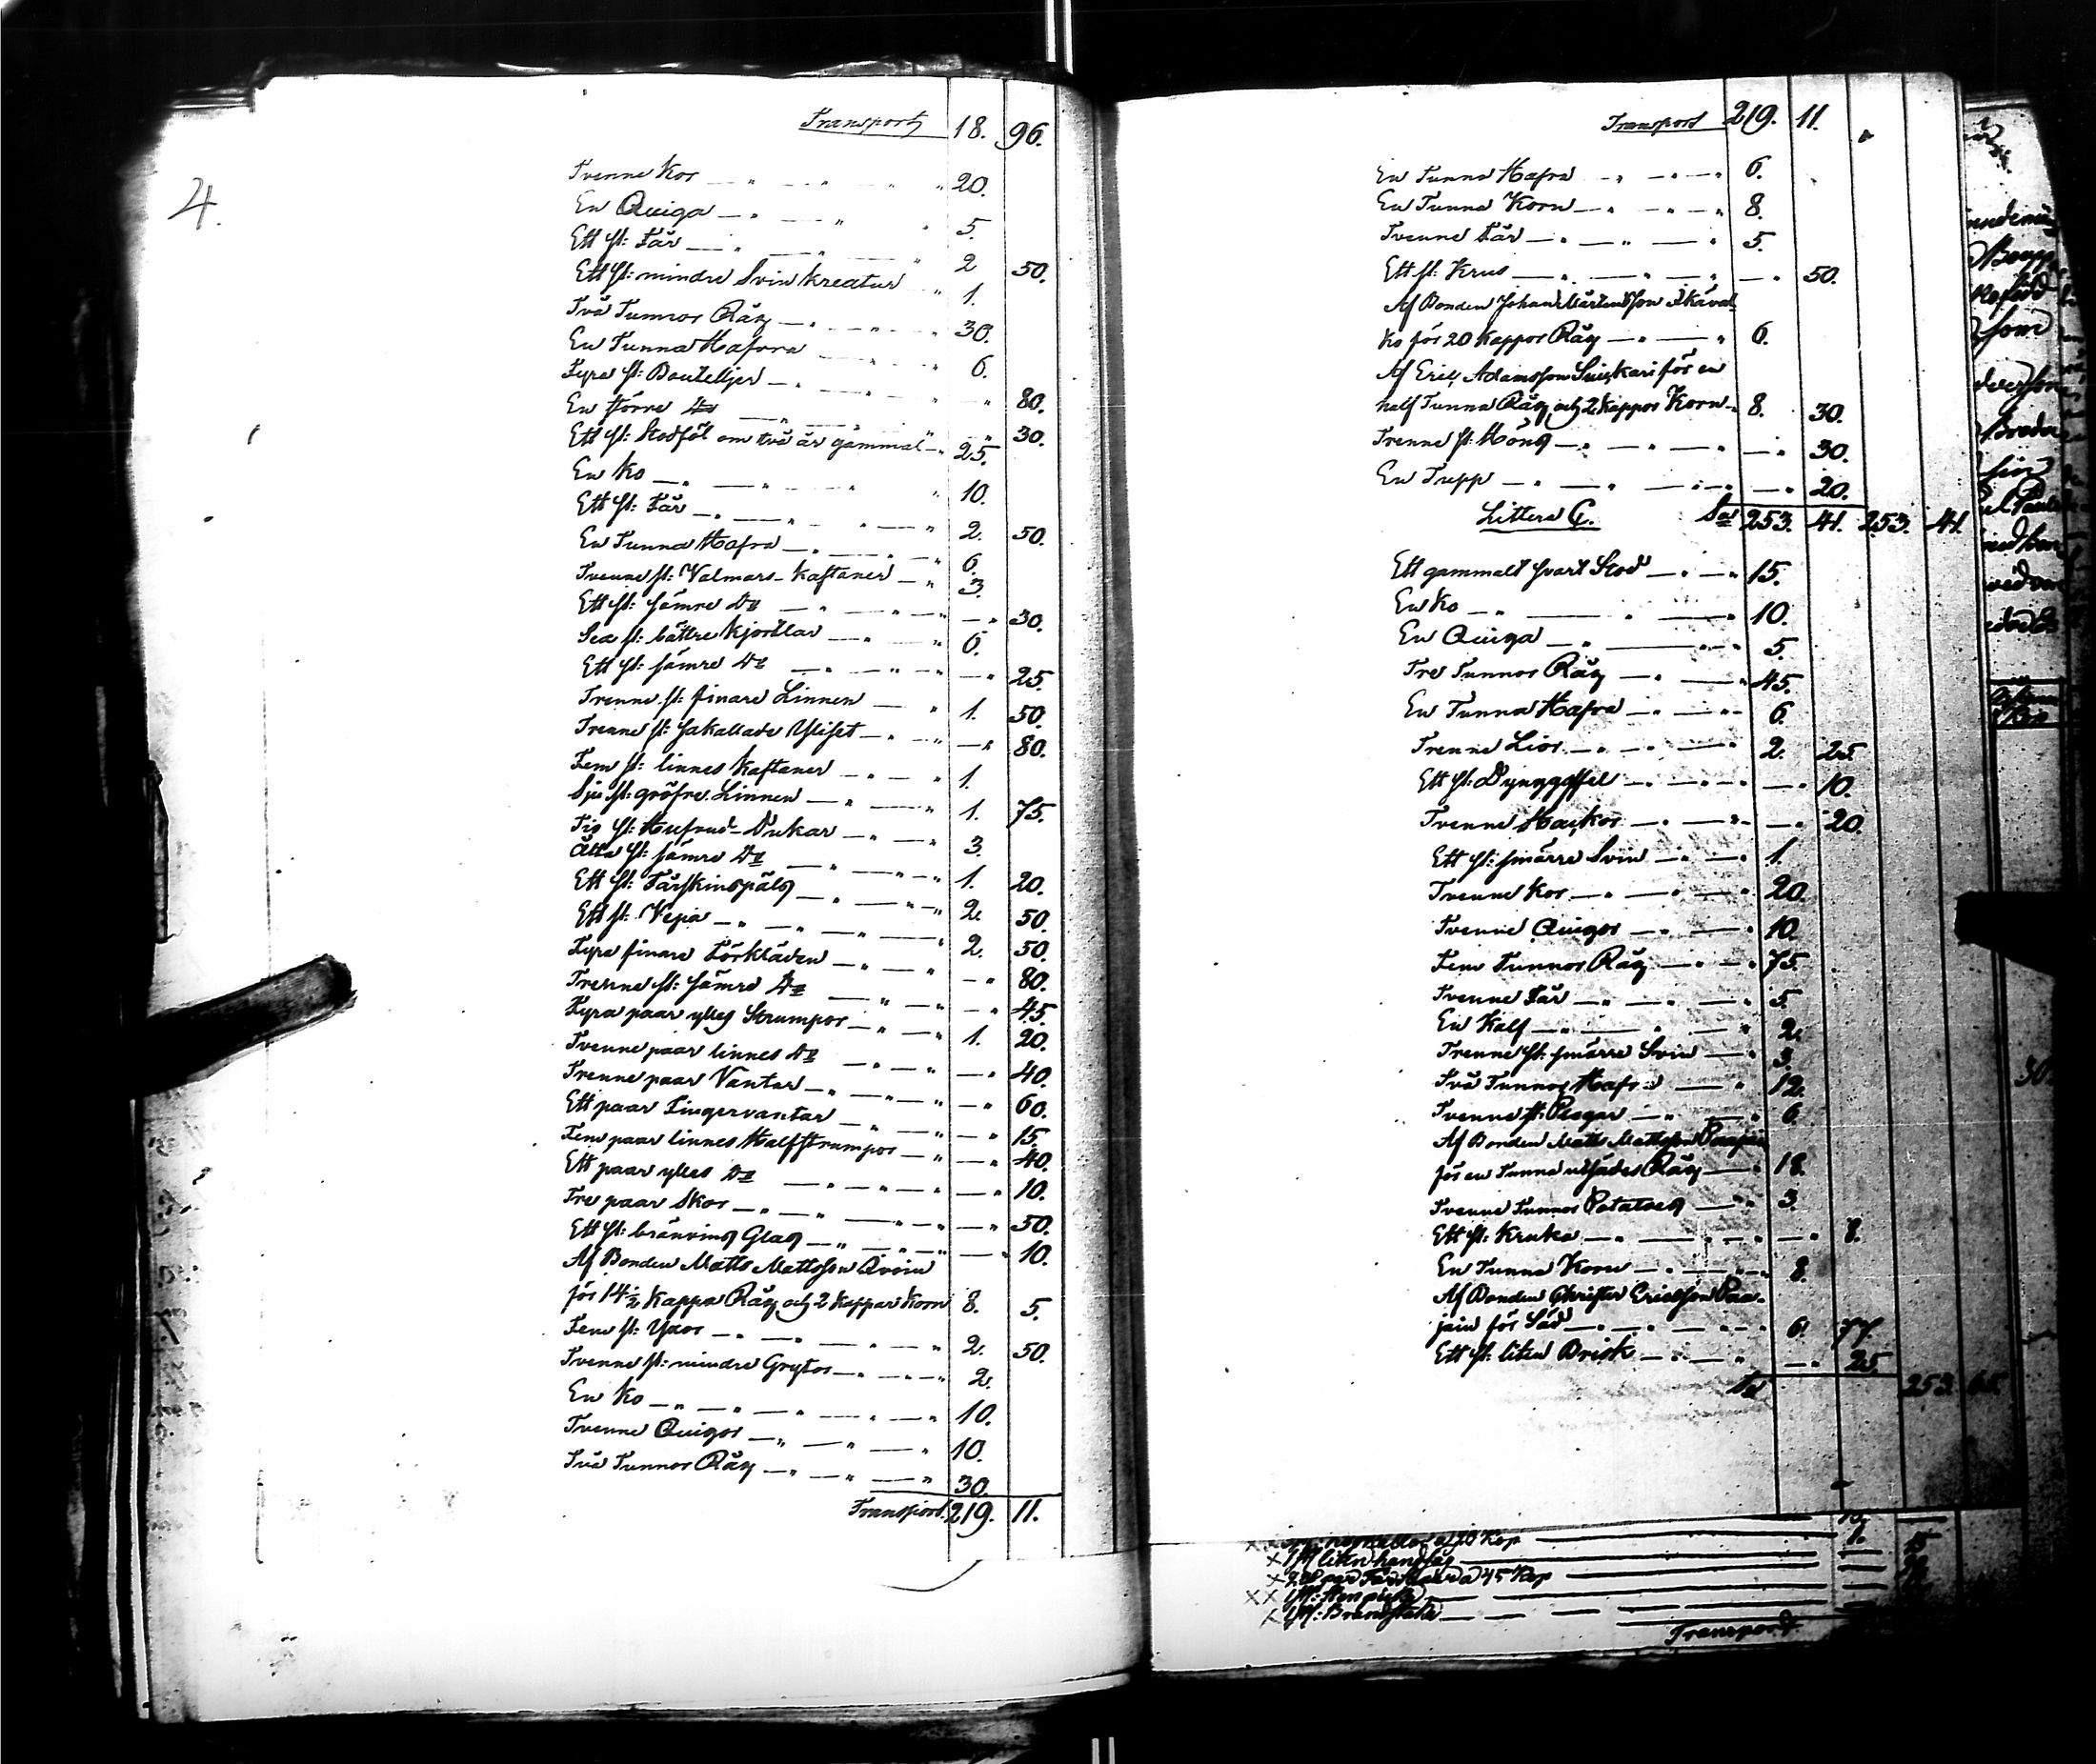 4.
Transport 18. 96.
Tvenne Kor 20.
En Quiga 5.
Ett st: Får 2 50.
Ett st: mindre Svin kreatur 1.
Två Tunnor Råg 30.
En Tunna Hafra 6.
Fyra st: Bouteljer 80.
En större Do 30.
Ett st: Stodföl om två år gammal 25.
En Ko 10.
Ett st: Får 2. 50.
En Tunna Hafra 6.
Tvenne st: Valmars-Kaftaner 3.
Ett st: sämre Do 30.
Sex st: bättre Kjortlar 6.
Ett st: sämre Do 25.
Trenne st: finare Linnen 1. 50.
Trenne st: så kallade 80.
Fem st: linnes Kaftaner 1.
Sju st: gröfre Linnen 1. 75.
Tio st: Hufvud-Dukar 3.
Åtta st: sämre Do 1. 20.
Ett st: Fårskinspäls 2. 50.
Ett st: 2. 50.
Fyra finare Förkläden 80.
Trenne st: sämre Do 45.
Fyra paar ylles Strumpor 1. 20.
Tvenne paar linnes Do 40.
Trenne paar Vantar 60.
Ett paar Fingervantar 15.
Fem paar linnes Halfstrumpor 40.
Ett paar ylles Do 10.
Tre paar Skor 50.
Ett st: bränvins Glas 10.
Af Bonden Matts Mattsson
för 14½ Kappa Råg och 2 Kappar Korn 8. 5.
Fem st: Yxor 2. 50.
Tvenne st: mindre Grytor 2.
En Ko 10.
Tvenne Quigor 10.
Två Tunnor Råg 30.
Transport. 219. 11.
Transport 219. 11.
En Tunna Hafra 6.
En Tunna Korn 8.
Tvenne Får 5.
Ett st: Krus 50.
Af Bonden Johan Mårtensson
Ko för 20 Kappor Råg 6.
Af Eric Adamsson för en
half Tunna Råg och 2 Kappor Korn 8. 30.
Trenne st: Höns 30.
En Tupp 20.
Littera C. Sa 253. 41. 253. 41.
Ett gammalt svart Stod 15.
En Ko 10.
En Quiga 5.
Tre Tunnor Råg 45.
En Tunna Hafra 6.
Trenne Liar 2. 25
Ett st: Dynggaffel 10.
Tvenne Hackor 20.
Ett st: smärre Svin 1.
Tvenne Kor 20.
Tvenne Quigor 10.
Fem Tunnor Råg 75.
Tvenne Får 5.
En Kalf 2.
Trenne st: smärre Svin 3.
Två Tunnor Hafra 12.
Tvenne st: Plogar 6.
Af Bonden Matts Mattsson
för en Tunna utsädes Råg 18.
Tvenne Tunnor Potatoes 3.
Ett st: Kruka 8.
En Tunna Korn 8.
Af Bonden Christer Ericsson Paa-
jain för Säd 6. 77.
Ett st: liten Brisk 25.
Sa 253. 65.
liten handsåg
a 45 Kop
Transport